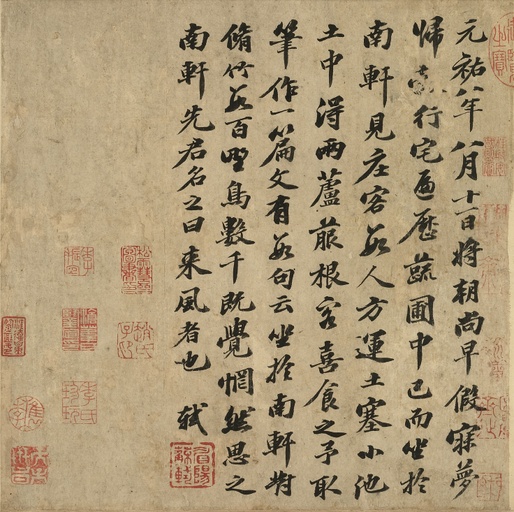 元祐八年八月十一日將朝尚早假寐夢
歸行宅遍歷蔬圃中已而坐於
南軒見莊客數人方運土塞小池
土中得兩蘆菔根客喜食之予取
筆作一篇文有數句云坐於南軒對
脩竹數百野鳥數千既覺惘然思之
南軒先君名之曰來風者也 軾
眉陽蘇軾